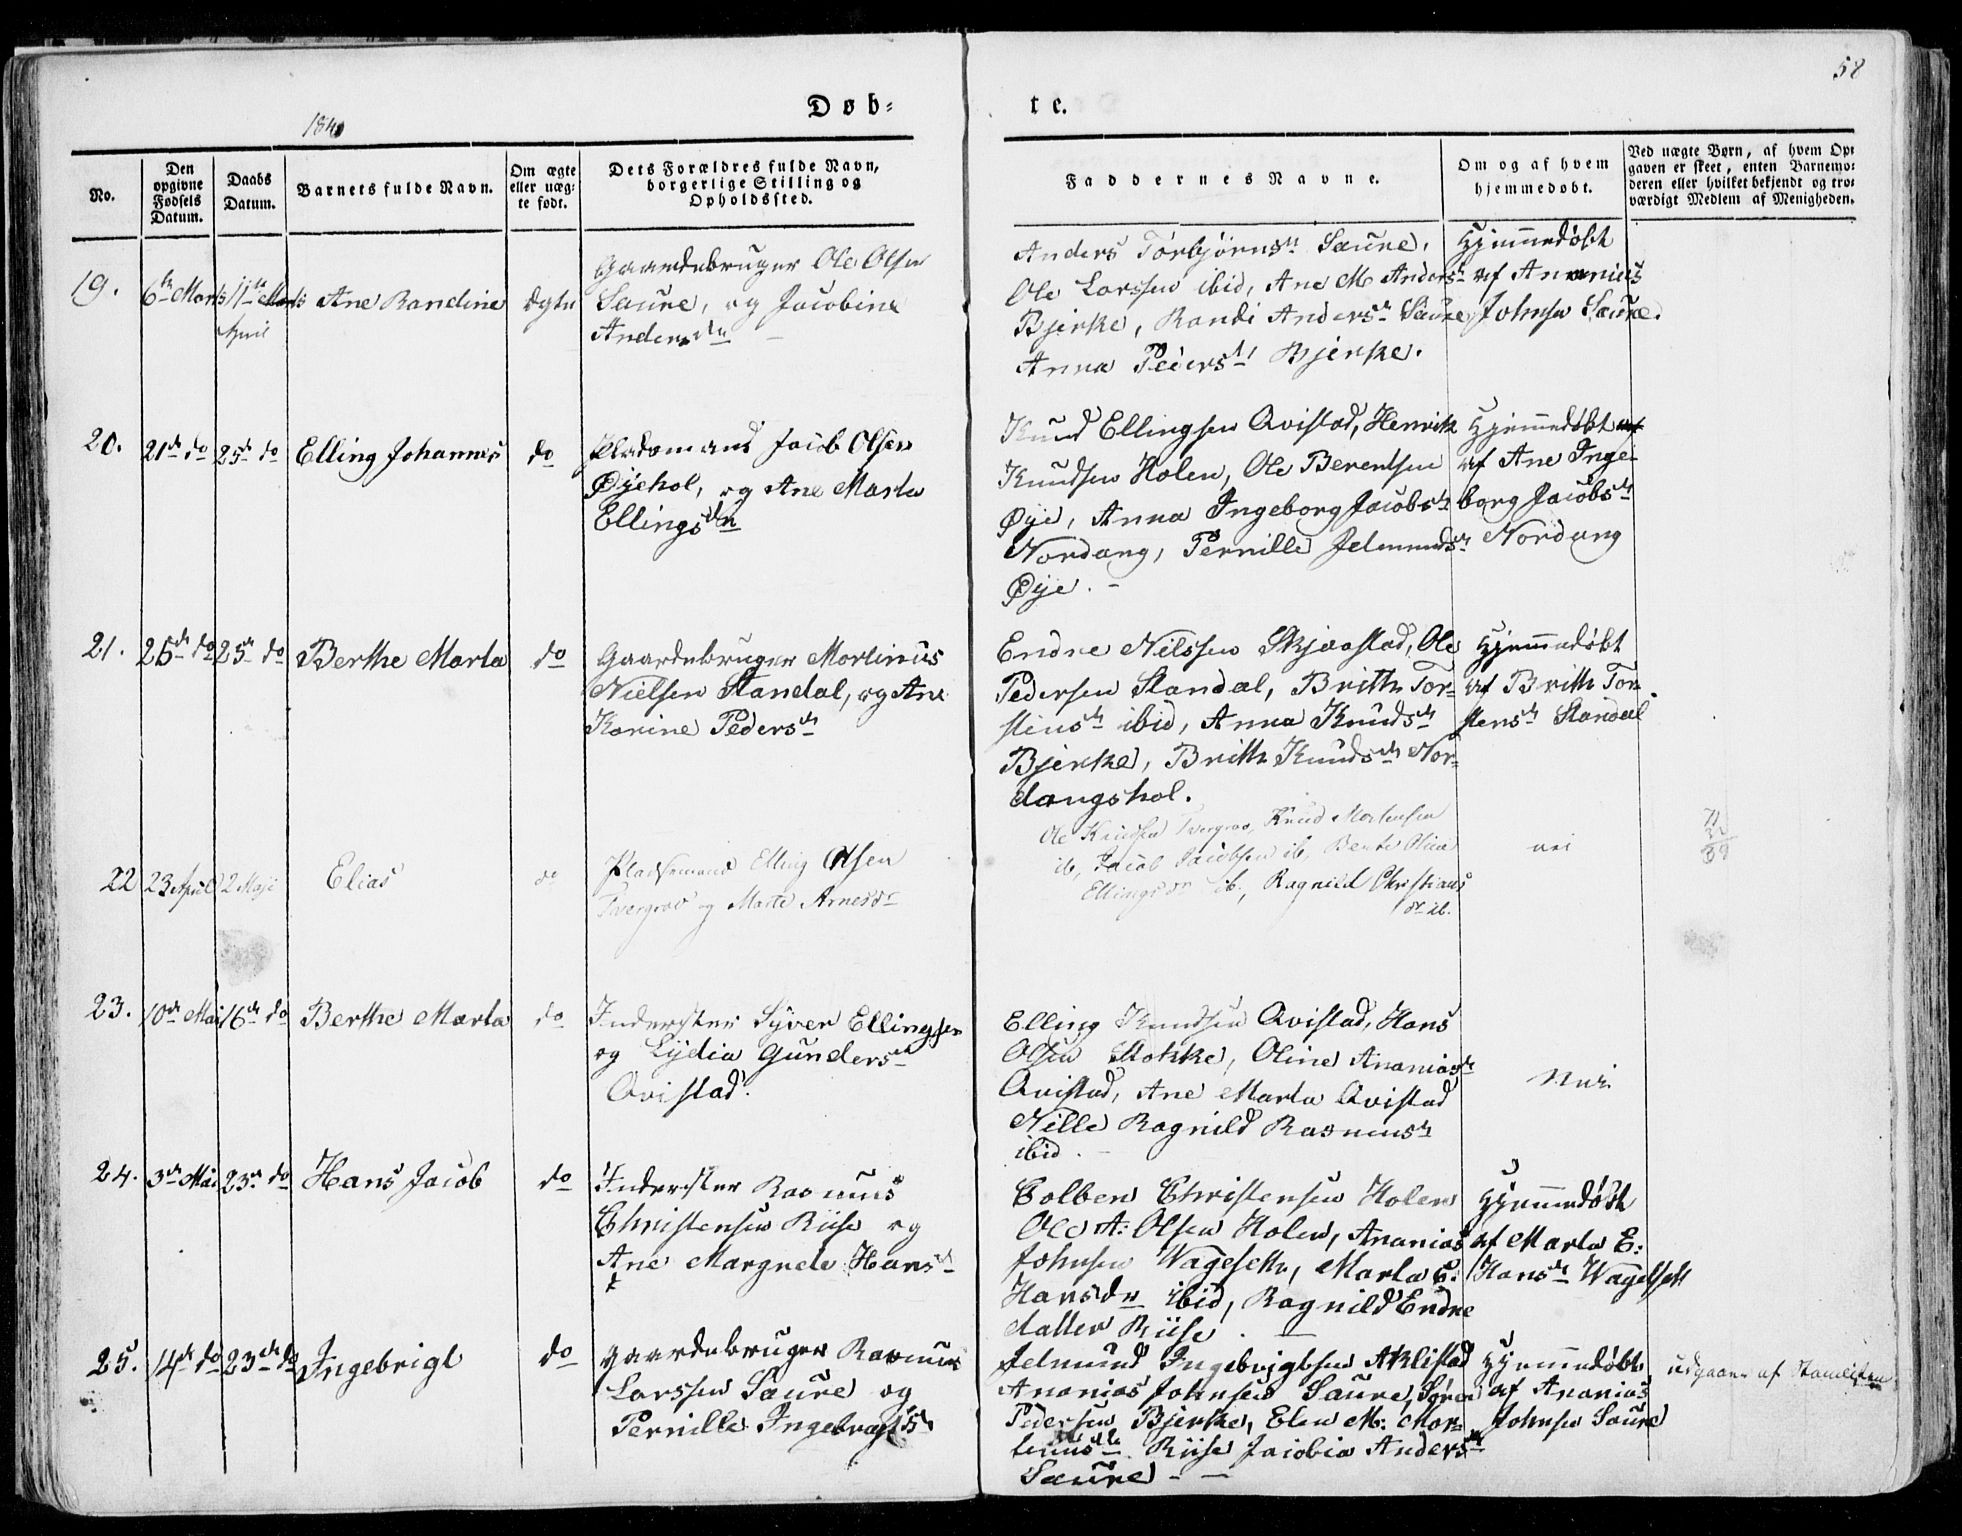 58
Døb-
te.
1840
No.
Den opgivne Fødsels Datum.
Daabs Datum.
Barnets fulde Navn.
Om ægte eller uægte født.
Dets Forældres fulde Navn, borgerlige Stilling og Opholdssted.
Faddernes Navne.
Om og af hvem hjemmedøbt.
Ved uægte Børn, af hvem Opgaven er skeet, enten Barnemoderen eller hvilket bekjendt og troværdigt Medlem af Menigheden.
19.
6te Marts
11te Marts
April
Ane Randine
Ægte
Gaardebruger Ole Olsen
Saure, og Jacobine
Andersdtr
Anders Torbjørns. Saure,
Ole Larssen ibid, Ane M. Andersdr
Bjerke, Randi Andersdr Saure,
Anna Pedersdr Bjerke.
Hjemmedøbt
af Ananias
Johnsen Saure.
20.
21de do
25de do
Elling Johannes
do
Pladsmand Jacob Olsen
Øyehol, og Ane Marta
Ellingsdtr
Knud Ellingsen Qvistad, Henrik
Knudsen Holen, Ole Berentsen
Øye, Anna Ingeborg Jacobsdr
Nordang, Pernille Jelmundsdr
Øye.
Hjemmedøbt
af Ane Inge-
borg Jacobsdr
Nordang
21.
25de do
25de do
Berthe Marta
do
Gaardebruger Martinus
Nielsen Standal, og Ane
Karine Pedersdr
Endre Nilssen Skjaastad, Ole
Pedersen Standal, Brith Tor-
stensdr ibid, Anna Knudsdr
Bjerke, Brith Knudsdr Nor-
dangshol.
Hjemmedøbt
af Brith Tor-
stensdr Standal
22
23 April
2 Maji
Elias
do
Pladsmand Elling Olsen
Tvergrov og Marte Arnesdr
Ole Knudsen Tvergrov, Knud Mortensen
ib, Jacob Jacobsen ib, Berte Oline
Ellingsdr ib, Ragnild Christians
dr ib.
nei
23.
10de Mai
16de do
Berthe Marta
do
Inderster Syver Ellingsen
og Lydia Gundersdr
Qvistad.
Elling Knudsen Qvistad, Hans
Olsen Stokke, Oline Ananiasdr
Qvistad, Ane Marta Qvistad
Nille Ragnild Rasmusdr
ibid.
Nei
24.
3de Mai
23de do
Hans Jacob
do
Inderster Rasmus
Christensen Riise og
Ane Margrete Hansdr
Colben Christensen Holen
Ole A: Olsen Holen, Ananias
Johnsen Wageseth, Marta E.
Hansdtr ibid, Ragnild Endre
datter Riise.
Hjemmedøbt
af Marta E:
Hansdr Wageset
25.
14de do
23de do
Ingebrigt
do
Gaardebruger Rasmus
Larssen Saure og
Pernille Ingebrigtsdr
Jelmund Ingebrigtsen Aklistad
Ananias Johnsen Saure, Søren
Pedersen Bjerke, Elen M: Mar-
tinusdtr Riise Jacobia Andersdr
Saure
Hjemmedøbt
af Ananias
Johnsen Saure
udgaaet af Stamlisten